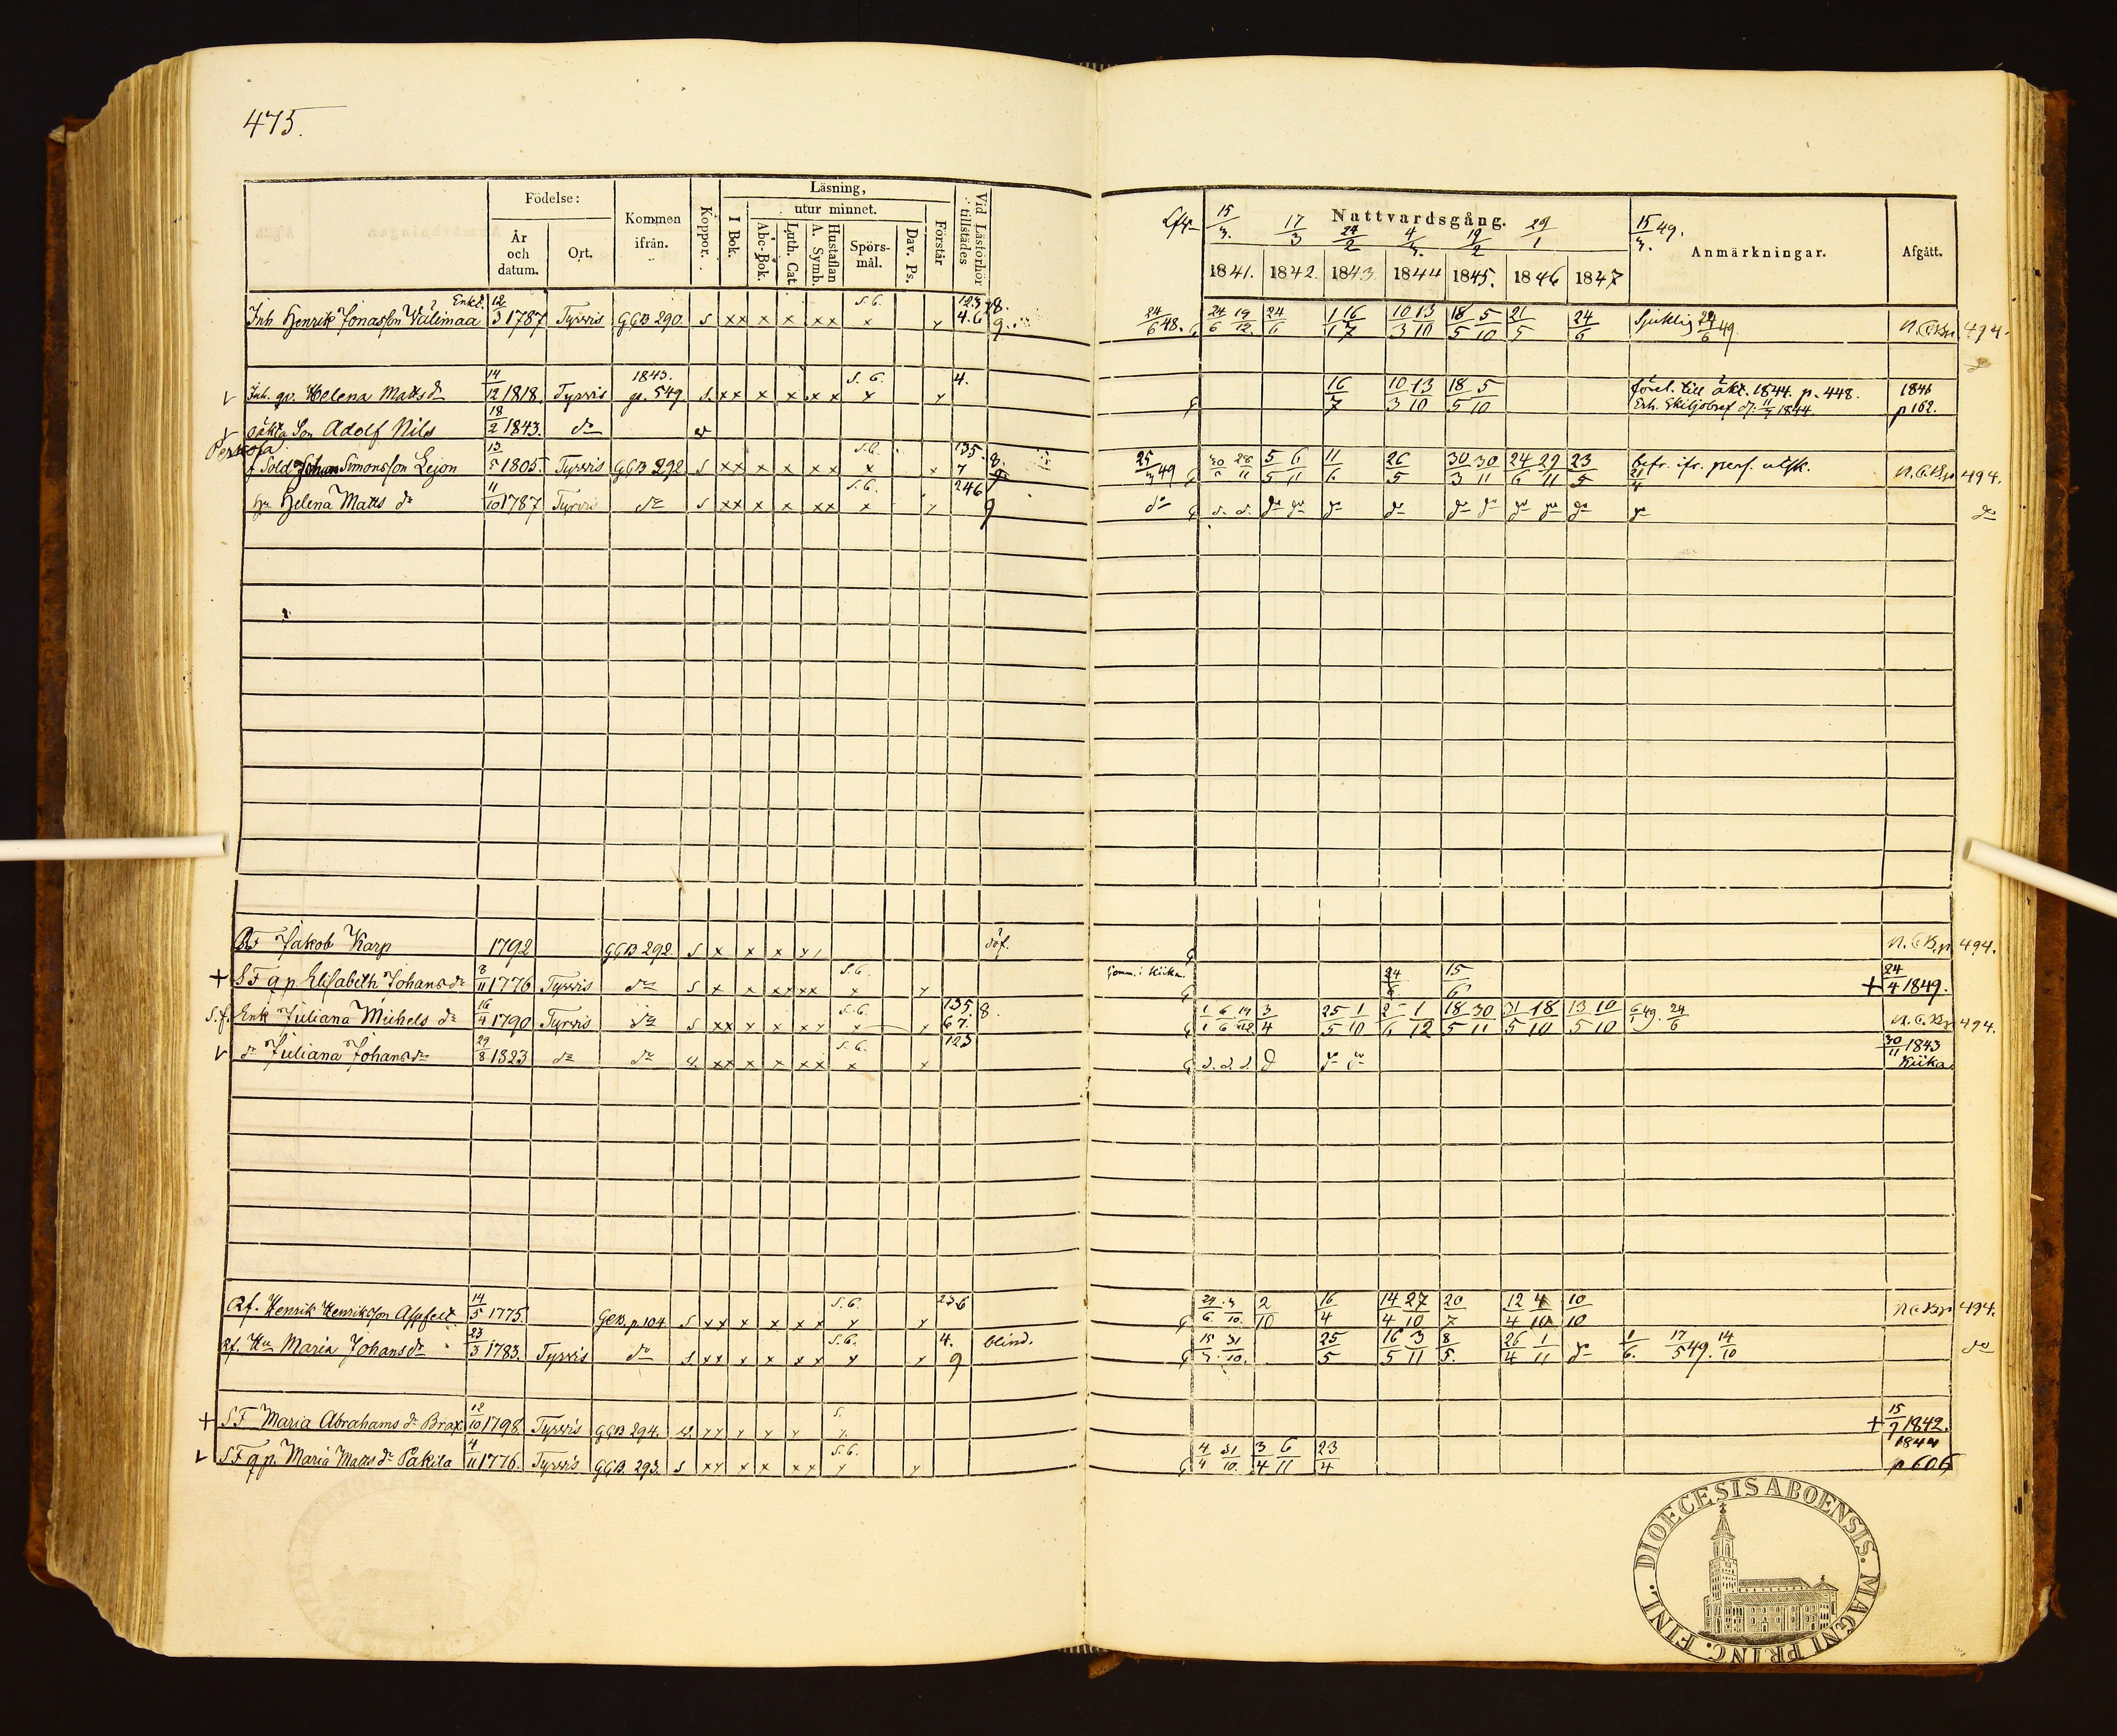 475.
Födelse:
År och datum.
Ort.
Kommen ifrån.
Koppor.
Läsning,
I Bok.
utur minnet.
Abc-Bok.
Luth. Cat.
Hustaflan A. Symb.
Spörs-mål.
Dav. Ps.
Förstår
Vid Läsförhör tillstädes
15/3. 17/3 24/2 4/3. 19/2 29/1 15/3. 49.
Nattvardsgång.
1841. 1842. 1843. 1844 1845. 1846 1847
Anmärkningar.
Afgått.
Enkl.
Inh Henrik Jonasson Wälimaa 12/3 1787 Tyrvis GCB 290. s xx x x xx S.G. x x 123 4.6 8. 9. 24/6 48. 24/6 19/12. 24/6 1/1 16/7 10/3 13/10 18/5 5/10 21/5 24/6 Sjuklig 24/6 49. N.C.B.p. 494.
Inh. qv. Helena Matts dr 14/12 1818. Tyrvis 1843. p. 549 s. xx x x xx S.G. x x 4. 16/7 10/3 13/10 18/5 5/10 förel. till äkt. 1844. p. 448. 1846
Erh. Skiljobref d: 11/7 1844 p 162.
oäkta Son Adolf Nils 18/2 1843. do
f Sold Johan Simonsson Lejon 13/5 1805. Tyrvis GCB 292 s xx x x xx S.G. x x 135. 7 8. 25/3 49 5/5 6/11 11/6 26/5 30/3 30/11 24/6 29/11 23/5 befr. ifr. pers. utsk. N.C.B.p 494.
Hu Helena Matts dr 11/10 1787 Tyrvis do s xx x x xx S.G. x x 246 9 do
BF Jakob Karp 1792 GCB 292. s x x x x döf. N.C.B.p 494.
+ SF qp Elisabeth Johansdr 8/11 1776 Tyrvis do s x x xx xx S.G. x x Comm. i Kiika. 24/6. 15/6 + 24/4 1849.
S.f. Enk Juliana Michels dr 16/4 1790 Tyrvis do s xx x x xx S.G. x x 135. 67. 8. 3/4 25/5 1/10 2/6 1/12 18/5 30/11 31/5 18/10 13/5 10/10 24/6 N.C.B.p 494.
dr Juliana Johansdr 29/8 1823 do do xx x x xx S.G. x x 123 30/11 1843 Kiika
Rf. Henrik Henriksson Appfelt 14/5 1775. GCB. p. 104 s xx x x x x S.G. x x 236 2/10 16/4 14/4 27/10 20/7 12/4 4/10 10/10 N.C.B.p 494.
Rf. Hu Maria Johans dr 23/3 1783. Tyrvis do s xx x x xx S.G. x x 4. 9 blind. 25/5 16/5 3/11 8/5. 26/4 1/11 do 1/6. 17/5 49. 14/10 do
+ SF Maria Abrahams dr Brax 12/10 1798. Tyrvis GCB 294. S. + 15/7 1842.
SF qp. Maria Matts dr Pakila 4/11 1776. Tyrvis GCB. 293. s xx x x xx S.G. x x 4/4 31/10. 3/4 6/11 23/4 1844 p 606
DIOECESIS ABOENSIS. MAGNI PRINC. FINL.